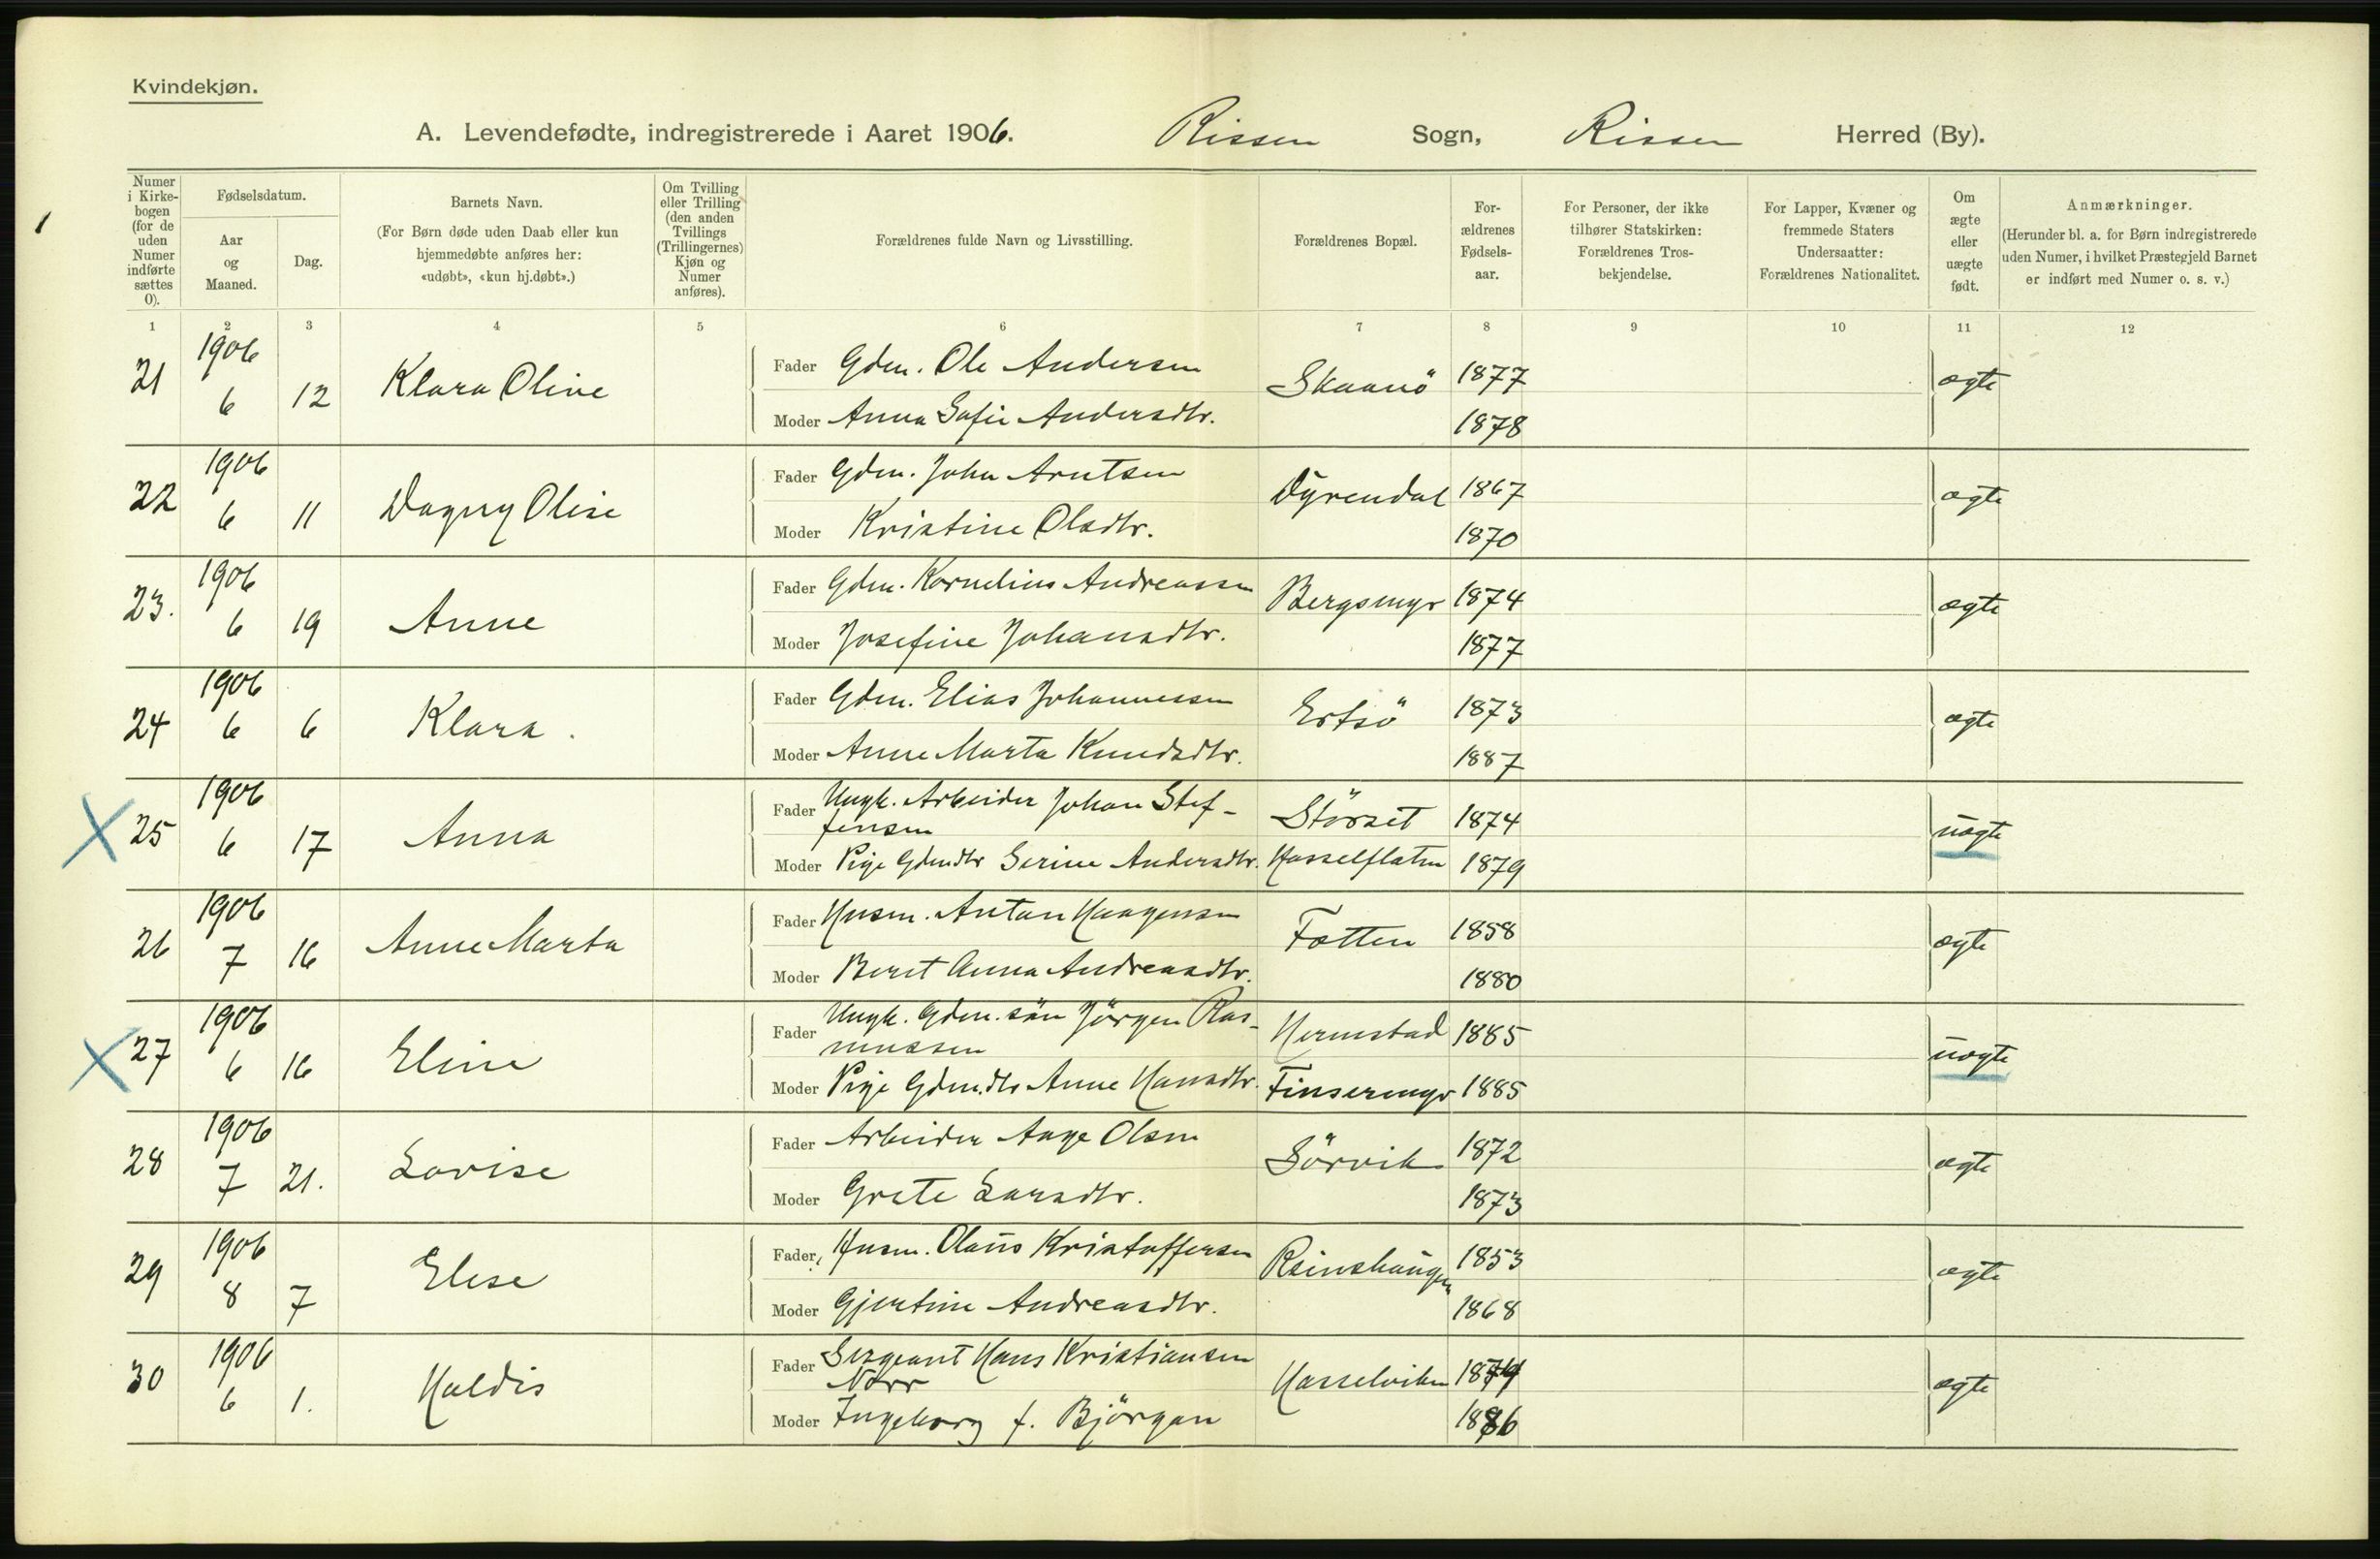 Kvindekjøn.
A. Levendefødte, indregistrerede i Aaret 1906. Rissen Sogn, Rissen Herred (By).
Numer i Kirkebogen (for de uden Numer indførte sættes 0).
Fødselsdatum.
Aar og Maaned.
Dag.
Barnets Navn.
(For Børn døde uden Daab eller kun hjemmedøbte anføres her: «udøbt», «kun hj.døbt».)
Om Tvilling eller Trilling (den anden Tvillings (Trillingernes) Kjøn og Numer anføres).
Forældrenes fulde Navn og Livsstilling.
Forældrenes Bopæl.
Forældrenes Fødselsaar.
For Personer, der ikke tilhører Statskirken: Forældrenes Trosbekjendelse.
For Lapper, Kvæner og fremmede Staters Undersaatter: Forældrenes Nationalitet.
Om ægte eller uægte født.
Anmærkninger.
(Herunder bl. a. for Børn indregistrerede uden Numer, i hvilket Præstegjeld Barnet er indført med Numer o. s. v.)
1 2 3 4 5 6 7 8 9 10 11 12
21 1906 6 12 Klara Olive
Fader Gdm. Ole Andersen Skaanö 1877 ægte
Moder Anna Sofie Andersdtr. 1878
22 1906 6 11 Dagny Olise
Fader Gdm. John Arntsen Dyrendal 1867 ægte
Moder Kristine Olsdtr. 1870
23. 1906 6 19 Anne
Fader Gdm. Kornelius Andreassen Bergsmyr 1874 ægte
Moder Josefine Johansdtr. 1877
24 1906 6 6 Klara.
Fader Gdm. Elias Johannessen Ertsö 1873 ægte
Moder Anne Marta Knudsdtr. 1887
25 1906 6 17 Anna
Fader Ungk. Arbeider Johan Stef-
fensen Störset 1874 uægte
Moder Pige Gdmdtr Serine Andersdtr. Hasselflaten 1879
26 1906 7 16 Anne Marta
Fader Husm. Anton Haagensen Fatten 1858 ægte
Moder Beret Anna Andreasdtr. 1880
27 1906 6 16 Eline
Fader Ungk. Gdm. sön Jörgen Ras-
mussen Hermstad 1885 uægte
Moder Pige Gdm.dtr Anne Hansdtr. Finsermyr 1885
28 1906 7 21. Lovise
Fader Arbeider Aage Olsen Sörvik 1872 ægte
Moder Grete Larsdtr. 1873
29 1906 8 7 Elise
Fader Husm. Olaus Kristoffersen Reinshaugen 1853 ægte
Moder Gjertine Andreasdtr. 1868
30 1906 6 1. Haldis
Fader Sergeant Hans Kristiansen
Norr Hasselviken ægte
Moder Ingeborg f. Björgan